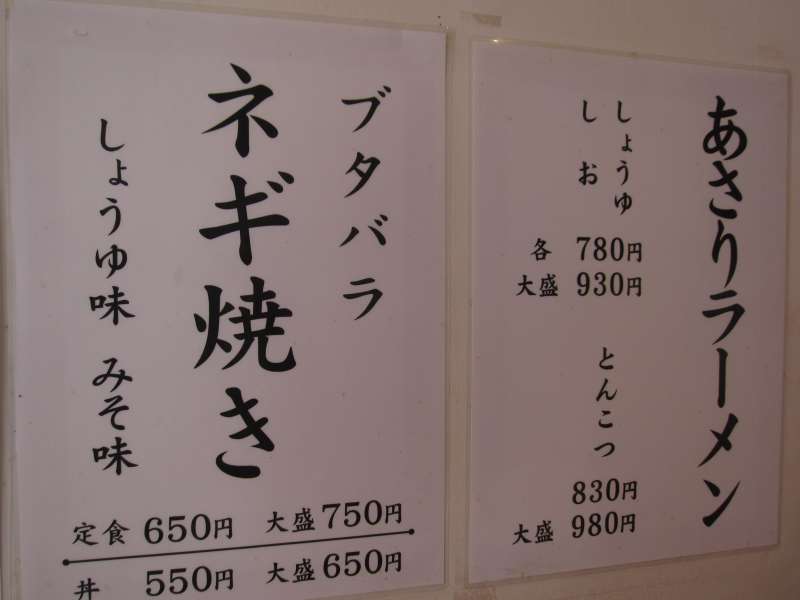 ブタバラ
ネギ焼き
しょうゆ味 みそ味
定食 650円 大盛 750円
丼 550円 大盛 650円
あさりラーメン
しょうゆ
しお
各 780円
大盛 930円
とんこつ
830円
大盛 980円